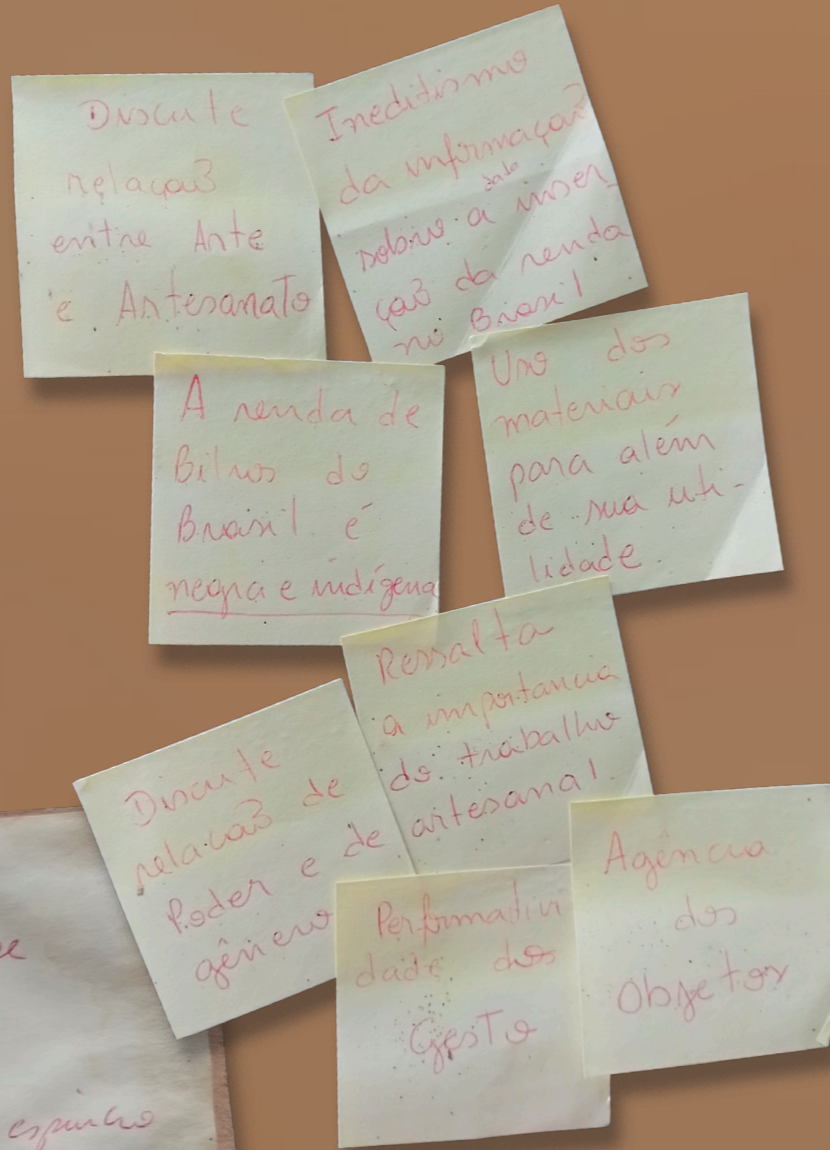 Discute
relação
entre Arte
e Artesanato
Ineditismo
da informação
dado
sobre a inser_
ção da renda
no Brasil
A renda de
Bilros do
Brasil é
negra e indígena
Uso dos
materiais
para além
de sua uti-
lidade.
Ressalta
a importancia
do trabalho
artesanal.
Discute
relação de
Poder e de
gênero
Performativi
dade dos
Gesto
Agência
dos
Objetos
e
espinho